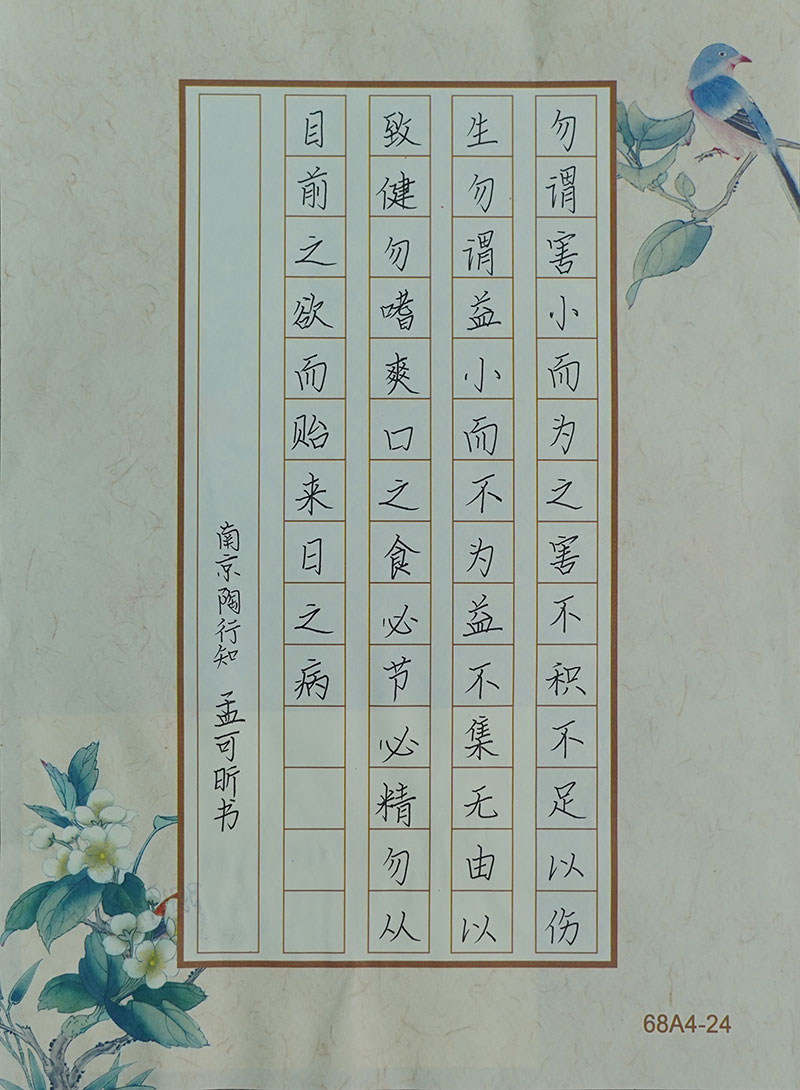 勿谓害小而为之害不积不足以伤
生勿谓益小而不为益不集无由以
致健勿嗜爽口之食必节必精勿从
目前之欲而贻来日之病
南京陶行知 孟可昕书
68A4-24